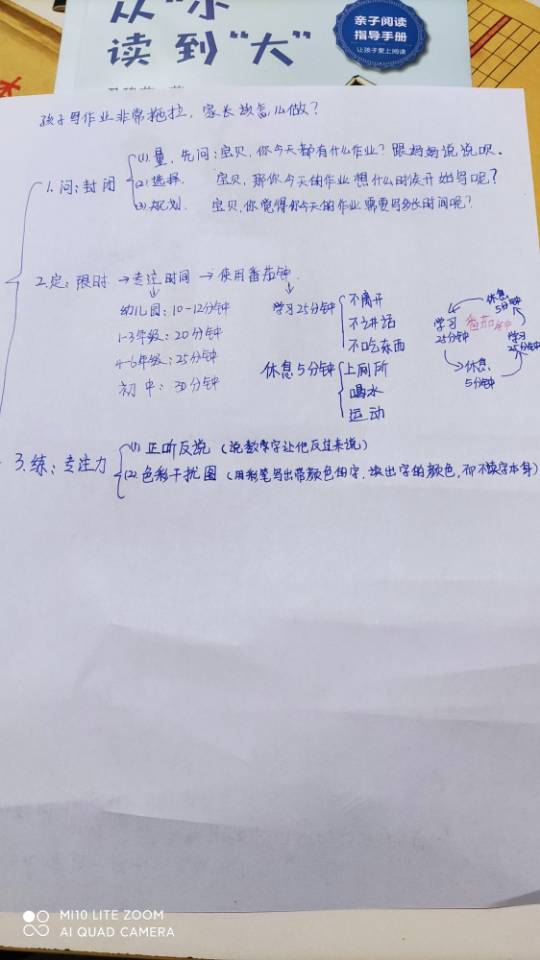 从"小"
读到"大"
亲子阅读
指导手册
让孩子爱上阅读
孩子写作业非常拖拉,家长该怎么做?
1.问:封闭
(1).量,先问:宝贝,你今天都有什么作业?跟妈妈说说呗.
(2).选择. 宝贝,那你今天的作业想什么时候开始写呢?
(3).规划. 宝贝,你觉得你今天的作业需要写多长时间呢?
2.定:限时→专注时间→使用番茄钟.
幼儿园:10-12分钟
1-3年级:20分钟
4-6年级:25分钟
初中:30分钟
学习25分钟
不离开
不讲话
不吃东西
休息5分钟
上厕所
喝水
运动
番茄钟
休息
5分钟
学习
25分钟
休息
5分钟
学习
25分钟
3.练:专注力
(1).正听反说(说数字让他反过来说)
(2).色彩干扰图(用彩笔写出带颜色的字,读出字的颜色,而不读字本身)
MI10 LITE ZOOM
AI QUAD CAMERA